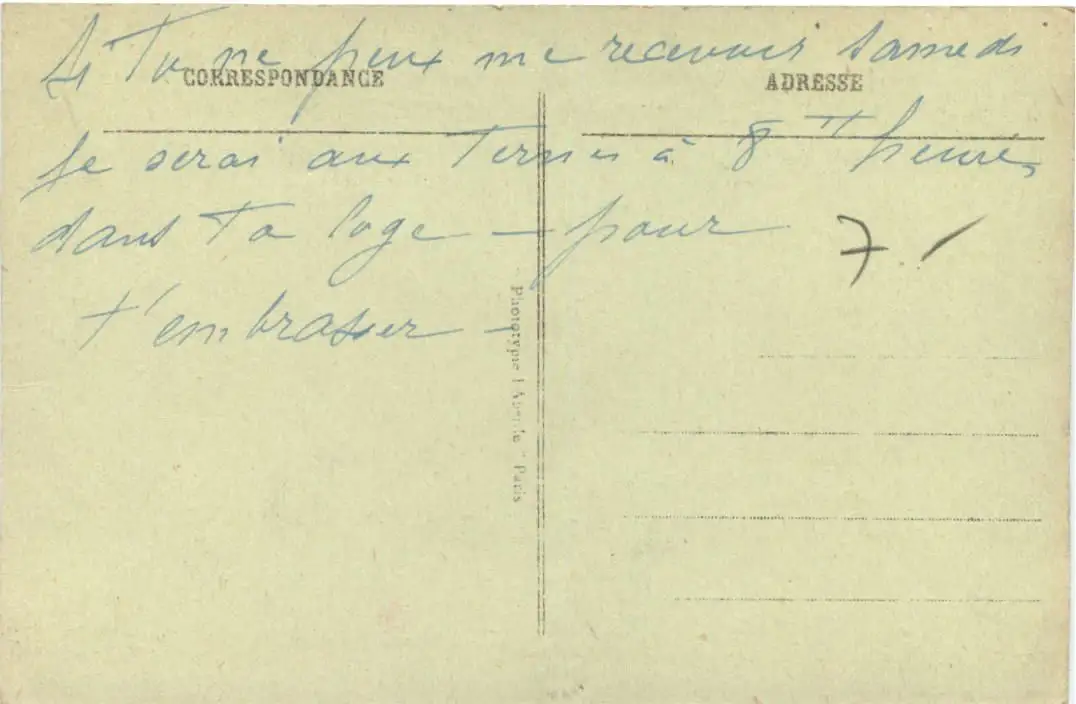 Si Tu ne peux me recevoir Samedi
CORRESPONDANCE
ADRESSE
je serai aux Ternes à 8 heures
dans Ta loge — pour
t'embrasser —
7.
Phototype Paris